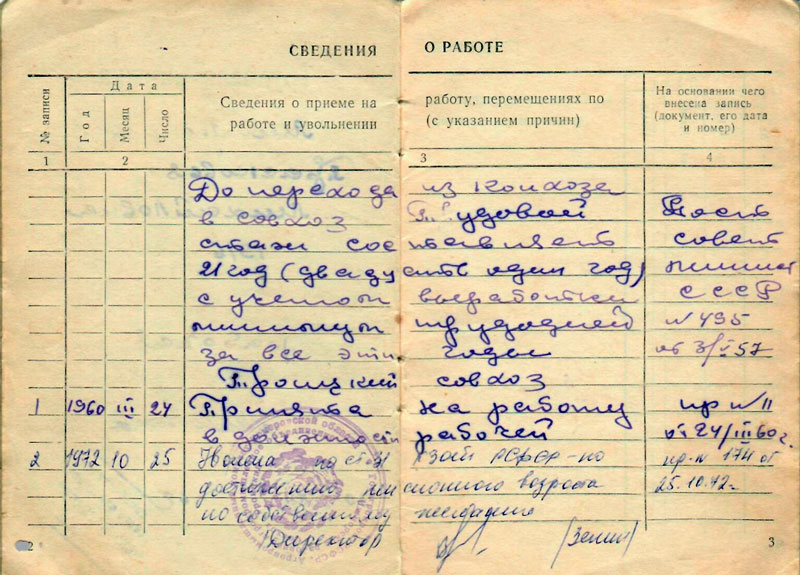 СВЕДЕНИЯ О РАБОТЕ
№ записи
Дата
Год
Месяц
Число
Сведения о приеме на работу, перемещениях по
работе и увольнении (с указанием причин)
На основании чего
внесена запись
(документ, его дата
и номер)
1 2 3 4
До перехода из колхоза
в совхоз Трудовой Пост
стаж составляет совет
21 год (двадцать один год) минист
с учетом выработки СССР
минимум трудодней № 495
за все эти годы от 3/V-57
Троицкий совхоз
1 1960 III 24 Принята на работу пр № 11
в должности рабочей от 24/III 60 г.
2 1972 10 25 Уволена по ст. РСФСР по пр. № 174 от
достижению пенсионного возраста 25.10.72 г.
по собственному желанию
Директор
2 3